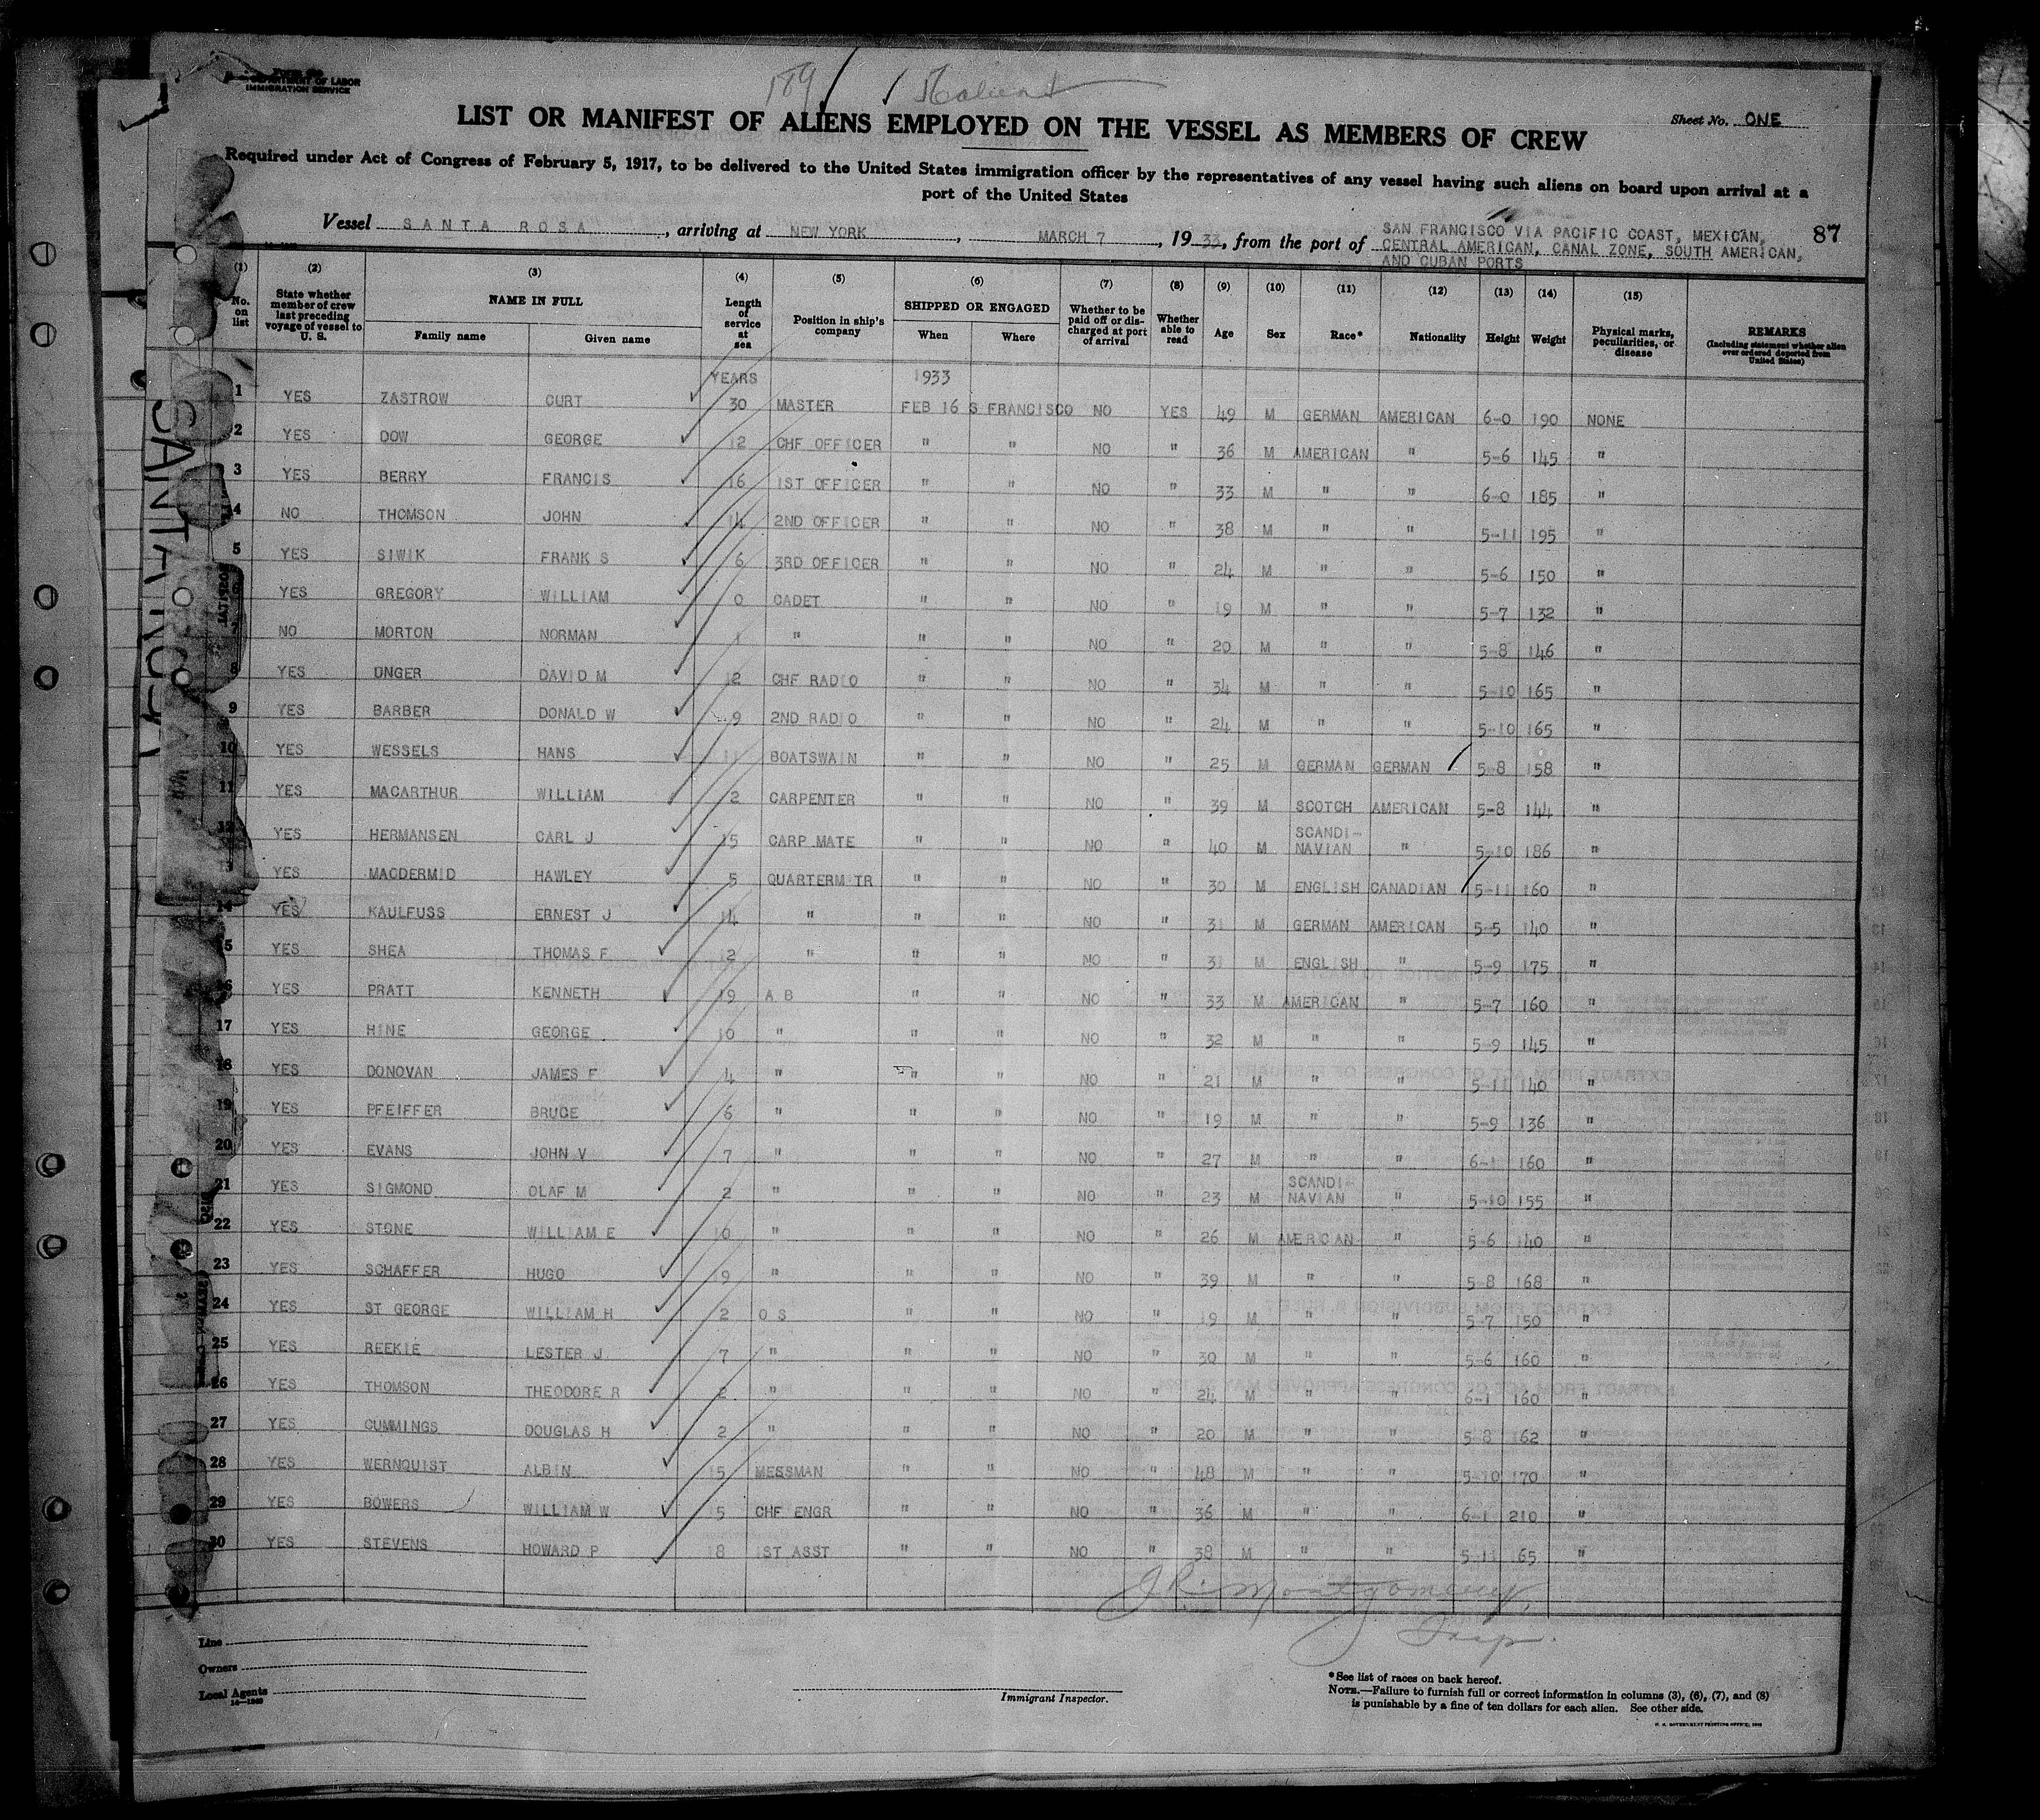 DEPARTMENT OF LABOR
IMMIGRATION SERVICE
189
LIST OR MANIFEST OF ALIENS EMPLOYED ON THE VESSEL AS MEMBERS OF CREW
Sheet No. ONE
Required under Act of Congress of February 5, 1917, to be delivered to the United States immigration officer by the representatives of any vessel having such aliens on board upon arrival at a
port of the United States
Vessel SANTA ROSA, arriving at NEW YORK, MARCH 7, 1933, from the port of SAN FRANCISCO VIA PACIFIC COAST, MEXICAN,
CENTRAL AMERICAN, CANAL ZONE, SOUTH AMERICAN,
AND CUBAN PORTS
87
(1) No. on list (2) State whether member of crew last preceding voyage of vessel to U. S. (3) NAME IN FULL Family name Given name (4) Length of service at sea (5) Position in ship's company (6) SHIPPED OR ENGAGED When Where (7) Whether to be paid off or discharged at port of arrival (8) Whether able to read (9) Age (10) Sex (11) Race* (12) Nationality (13) Height (14) Weight (15) Physical marks, peculiarities, or disease REMARKS (Including statement whether alien ever ordered deported from United States)
YEARS 1933
1 YES ZASTROW CURT 30 MASTER FEB 16 S FRANCISCO NO YES 49 M GERMAN AMERICAN 6-0 190 NONE
2 YES DOW GEORGE 12 CHF OFFICER " " NO " 36 M AMERICAN " 5-6 145 "
3 YES BERRY FRANCIS 16 1ST OFFICER " " NO " 33 M " " 6-0 185 "
4 NO THOMSON JOHN 14 2ND OFFICER " " NO " 38 M " " 5-11 195 "
5 YES SIWIK FRANK S 6 3RD OFFICER " " NO " 24 M " " 5-6 150 "
YES GREGORY WILLIAM 0 CADET " " NO " 19 M " " 5-7 132 "
NO MORTON NORMAN 1 " " " NO " 20 M " " 5-8 146 "
8 YES UNGER DAVID M 12 CHF RADIO " " NO " 34 M " " 5-10 165 "
9 YES BARBER DONALD W 9 2ND RADIO " " NO " 24 M " " 5-10 165 "
10 YES WESSELS HANS 11 BOATSWAIN " " NO " 25 M GERMAN GERMAN 5-8 158 "
11 YES MACARTHUR WILLIAM 2 CARPENTER " " NO " 39 M SCOTCH AMERICAN 5-8 144 "
12 YES HERMANSEN CARL J 15 CARP MATE " " NO " 40 M SCANDI-NAVIAN " 5-10 186 "
YES MACDERMID HAWLEY 5 QUARTERMTR " " NO " 30 M ENGLISH CANADIAN 5-11 160 "
14 YES KAULFUSS ERNEST J 14 " " " NO " 31 M GERMAN AMERICAN 5-5 140 "
15 YES SHEA THOMAS F 12 " " " NO " 31 M ENGLISH " 5-9 175 "
16 YES PRATT KENNETH 19 A B " " NO " 33 M AMERICAN " 5-7 160 "
17 YES HINE GEORGE 10 " " " NO " 32 M " " 5-9 145 "
18 YES DONOVAN JAMES F 4 " " " NO " 21 M " " 5-11 140 "
19 YES PFEIFFER BRUCE 6 " " " NO " 19 M " " 5-9 136 "
20 YES EVANS JOHN V 7 " " " NO " 27 M " " 6-1 160 "
21 YES SIGMOND OLAF M 2 " " " NO " 23 M SCANDI-NAVIAN " 5-10 155 "
22 YES STONE WILLIAM E 10 " " " NO " 26 M AMERICAN " 5-6 140 "
23 YES SCHAFFER HUGO 9 " " " NO " 39 M " " 5-8 168 "
24 YES ST GEORGE WILLIAM H 2 O S " " NO " 19 M " " 5-7 150 "
25 YES REEKIE LESTER J 7 " " " NO " 30 M " " 5-6 160 "
26 YES THOMSON THEODORE R 2 " " " NO " 24 M " " 6-1 160 "
27 YES CUMMINGS DOUGLAS H 2 " " " NO " 20 M " " 5-8 162 "
28 YES WERNQUIST ALBIN 15 MESSMAN " " NO " 48 M " " 5-10 170 "
29 YES BOWERS WILLIAM W 15 CHF ENGR " " NO " 36 M " " 6-1 210 "
30 YES STEVENS HOWARD P 18 1ST ASST " " NO " 38 M " " 5-11 165 "
J.R. Montgomery,
Insp.
Line
Owners
Local Agents
Immigrant Inspector.
*See list of races on back hereof.
NOTE.—Failure to furnish full or correct information in columns (3), (6), (7), and (8)
is punishable by a fine of ten dollars for each alien. See other side.